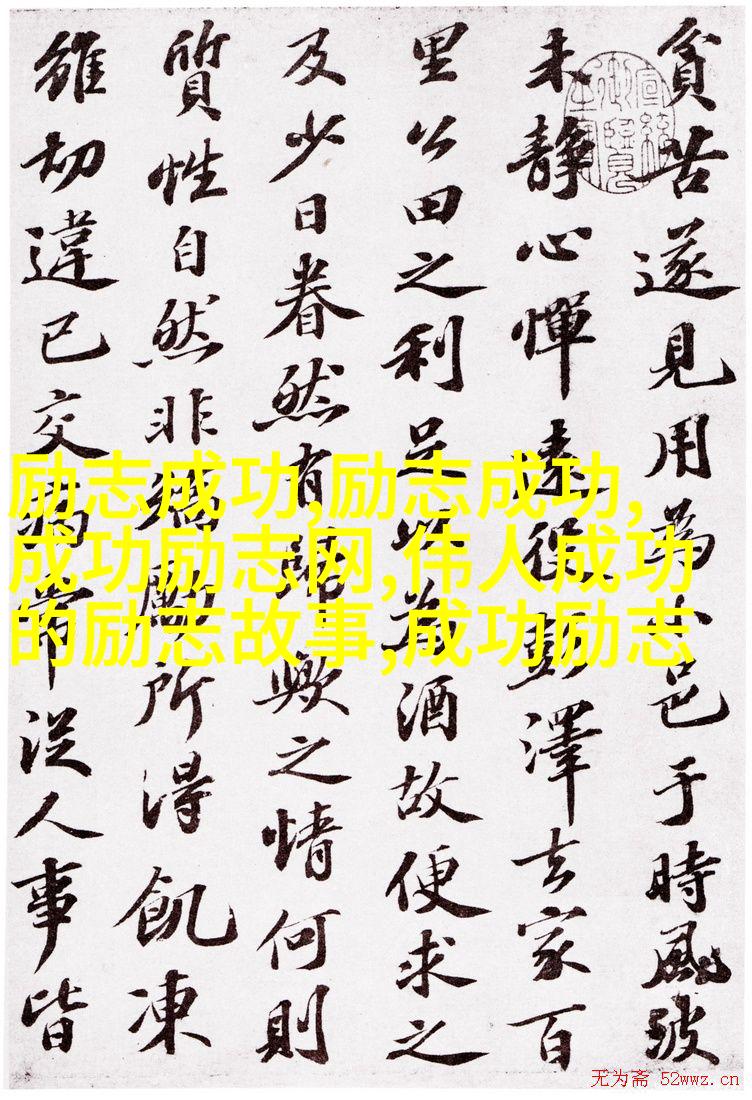 貧苦遂見用為小邑于時風波
未靜心憚遠役彭澤去家百
里公田之利足以為酒故便求之
及少日眷然有歸歟之情何則
質性自然非矯勵所得飢凍
雖切違己交病常從人事皆
励志成功,励志成功,
成功励志网,伟人成功
的励志故事,成功励志
无为斋 52wwz.cn